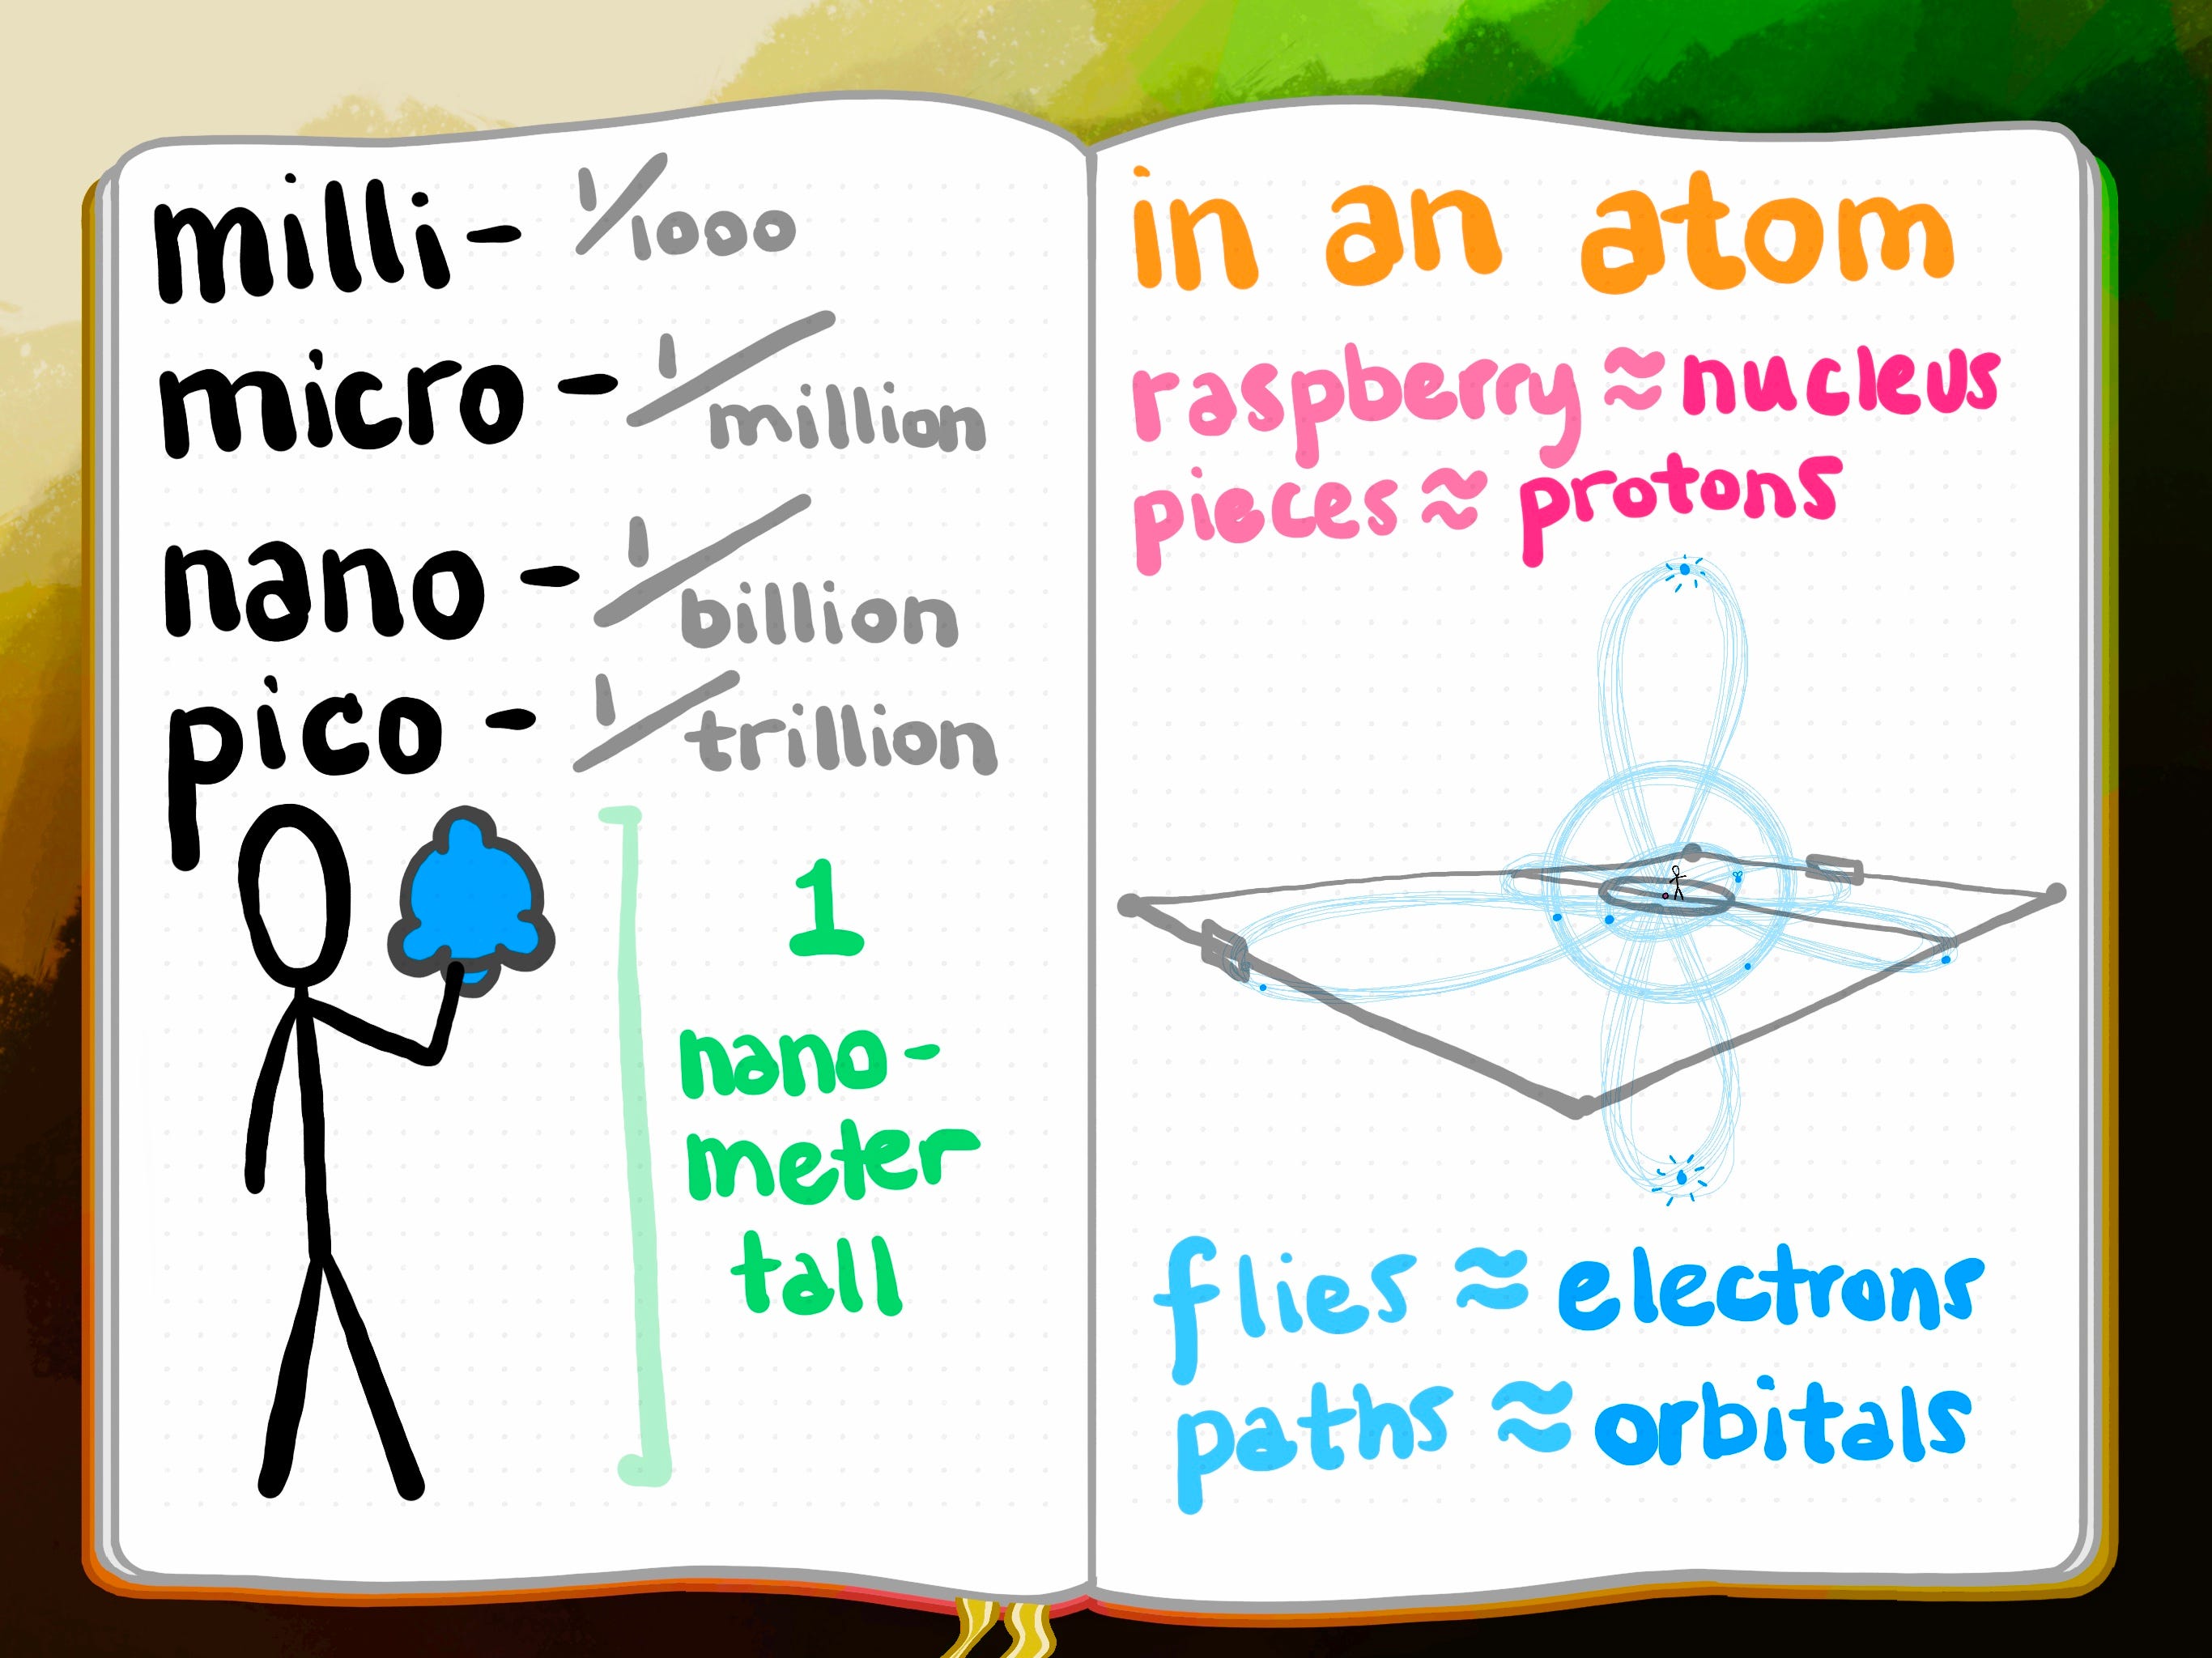 milli- 1/1000
micro- 1/million
nano- 1/billion
pico- 1/trillion
1
nano-
meter
tall
in an atom
raspberry ≈ nucleus
pieces ≈ protons
flies ≈ electrons
paths ≈ orbitals